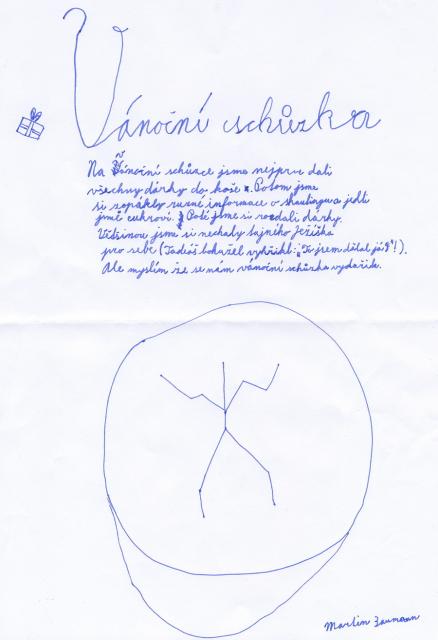 Vánoční schůzka
Na Vánoční schůzce jsme nejprve dali
všechny dárky do koše. Potom jsme
si zopákly různé informace o skautingu a jedli
jsmě cukroví. Poté jsme si rozdali dárky.
Většinou jsmi si nechaly tajného Ježíška
pro sebe (Tadeáš bohužel vykřikl: "To jsem dělal já!").
Ale myslím že se nám vánoční schůzka vydařila.
Martin